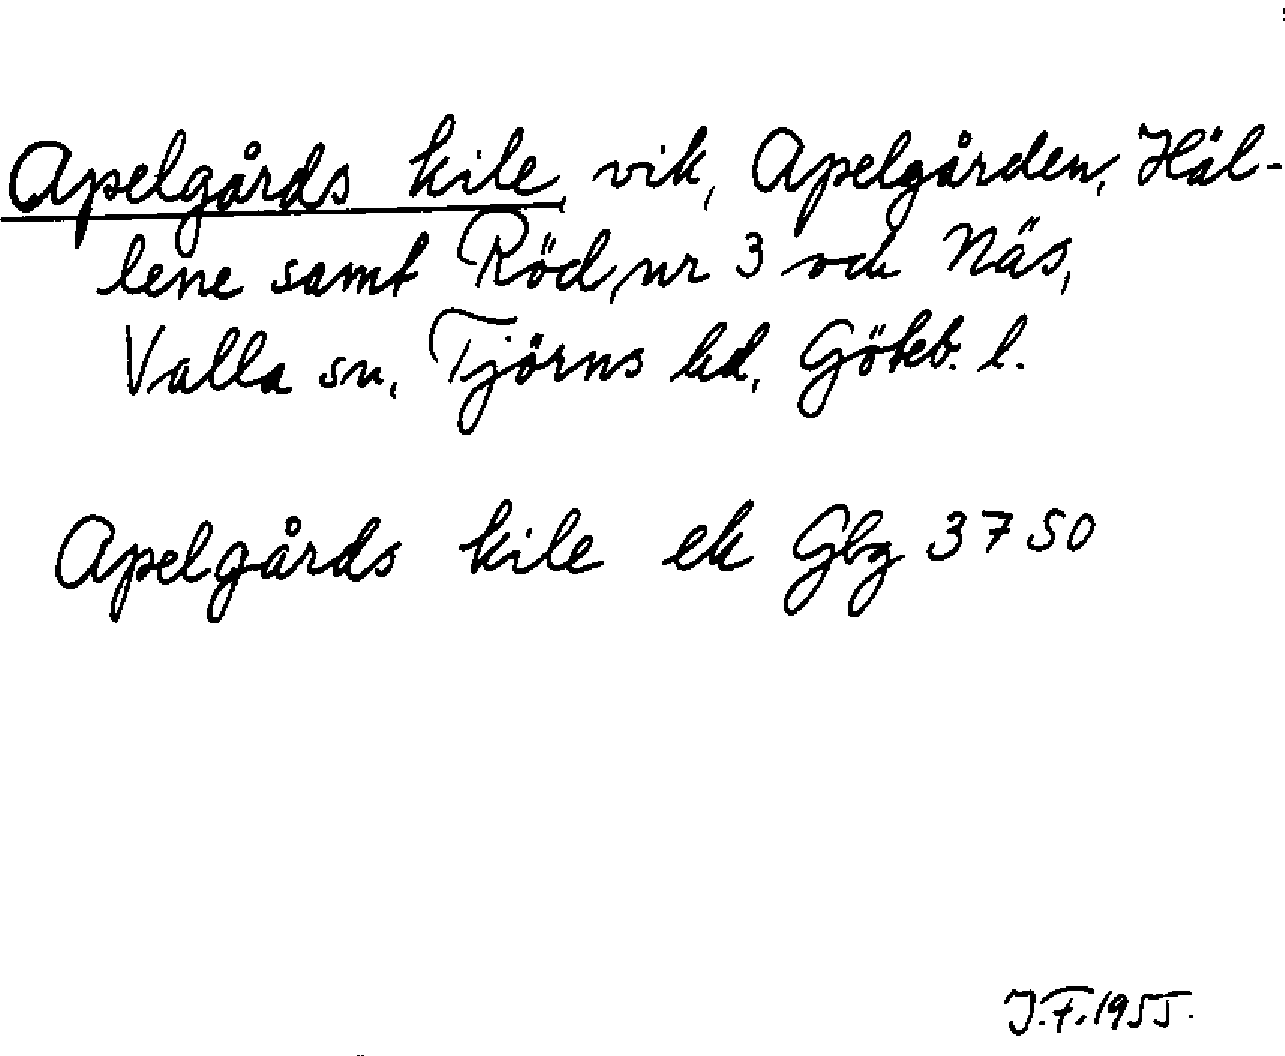 Apelgårds kile, vik, Apelgården, Häl-
lene samt Röd, nr 3 och Näs,
Valla sn, Tjörns hd, Göteb. l.
Apelgårds kile ek Gbg 3750
J.F. 1955.